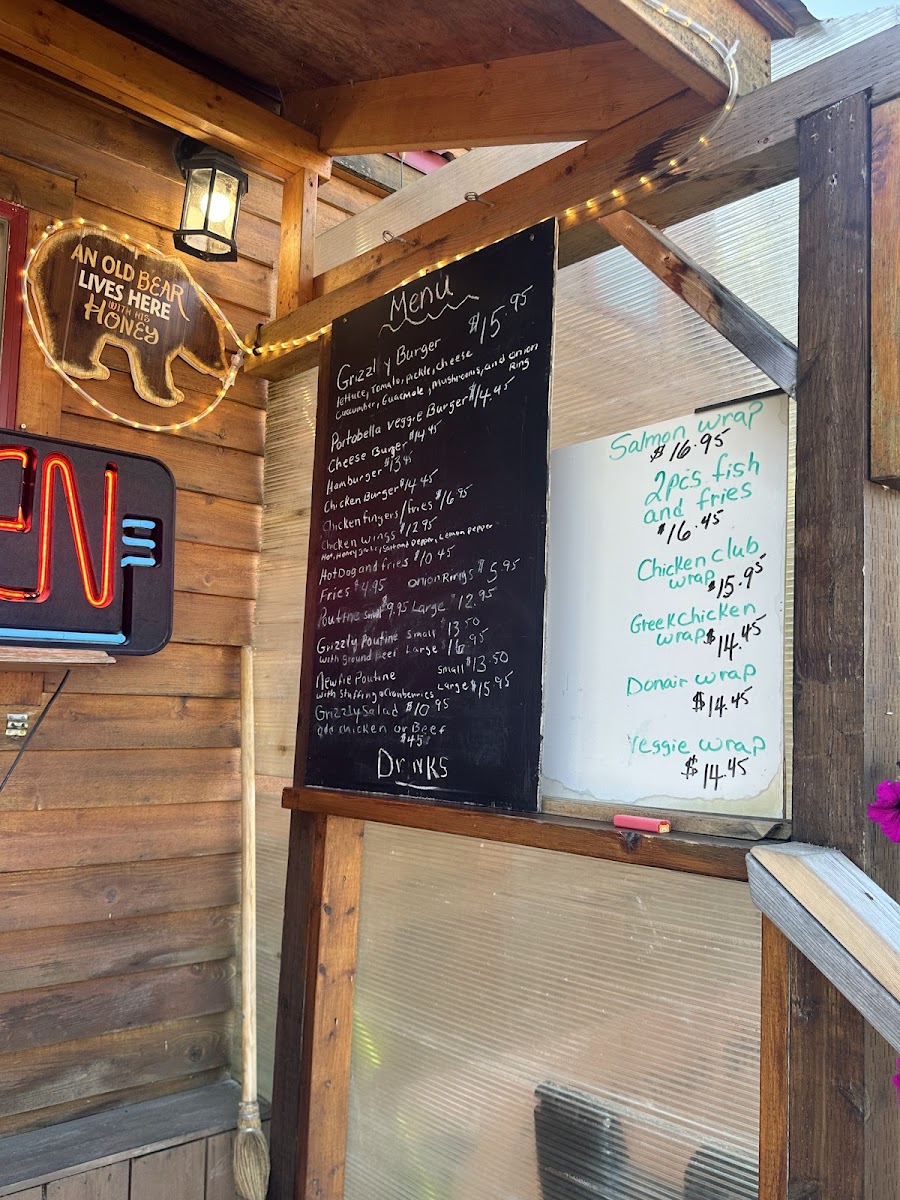 AN OLD BEAR
LIVES HERE
WITH HIS
HONEY
EN
Menu
Grizzly Burger $15.95
lettuce, Tomato, pickle, cheese
Cucumber, Guacmole, Mushrooms, and onion
Ring
Portabella veggie Burger $14.45
Cheese Burger $14.45
Hamburger $13.45
Chicken Burger $14.45
Chicken fingers/fries $16.95
Chicken wings $12.95
Hot, Honey Garlic, Salt and Pepper, Lemon pepper
Hot Dog and fries $10.45
Fries $4.95 Onion Rings $5.95
Poutine small $9.95 Large $12.95
Grizzly Poutine small $13.50
with ground beef Large $16.95
Newfie Poutine small $13.50
with stuffing & Cranberries Large $15.95
Grizzly Salad $10.95
add chicken or Beef
Drinks
Salmon wrap
$16.95
2pcs fish
and fries
$16.45
Chicken club
wrap $15.95
Greek Chicken
wrap $14.45
Donair wrap
$14.45
Veggie wrap
$14.45